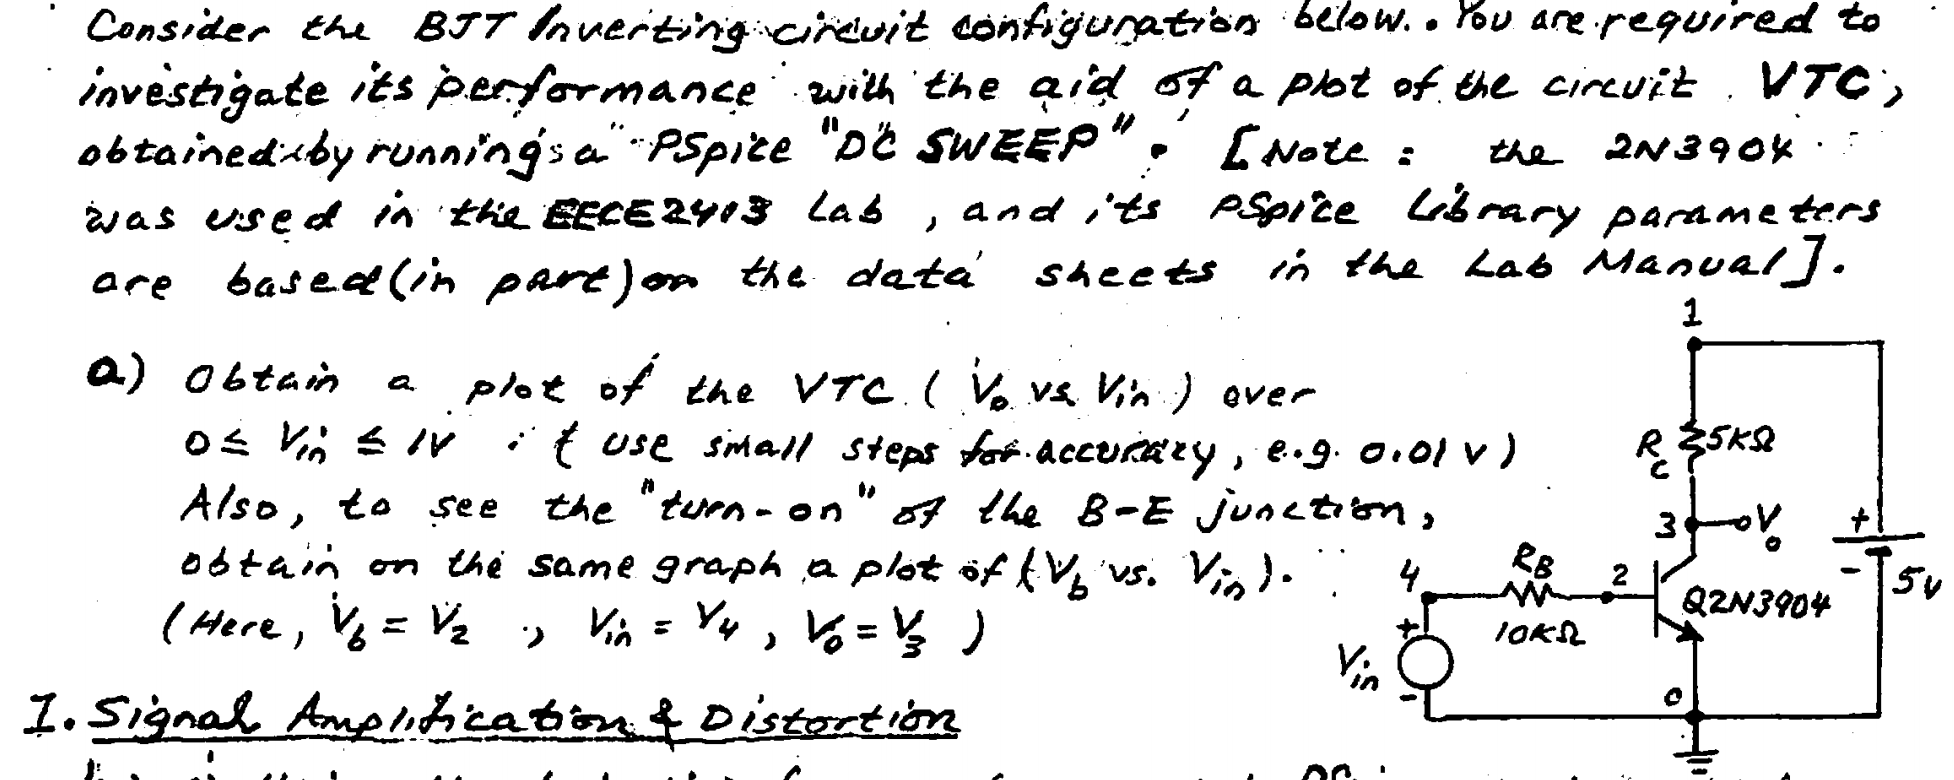 Consider the BJT Inverting circuit configuration below. You are required to
investigate its performance with the aid of a plot of the circuit VTC,
obtained by running a PSpice "DC SWEEP". [Note: the 2N3904
was used in the EECE2413 Lab, and its PSpice Library parameters
are based (in part) on the data sheets in the Lab Manual].
a) Obtain a plot of the VTC (Vo vs Vin) over
0 ≤ Vin ≤ 1V ; ( use small steps for accuracy, e.g. 0.01 V)
Also, to see the "turn-on" of the B-E junction,
obtain on the same graph a plot of (Vb vs. Vin).
(Here, Vb = V2 ; Vin = V4, Vo = V3 )
1
Rc 5KΩ
3 Vo
+
-
5V
4 RB 2
10KΩ
Q2N3904
+
Vin
-
0
I. Signal Amplification & Distortion